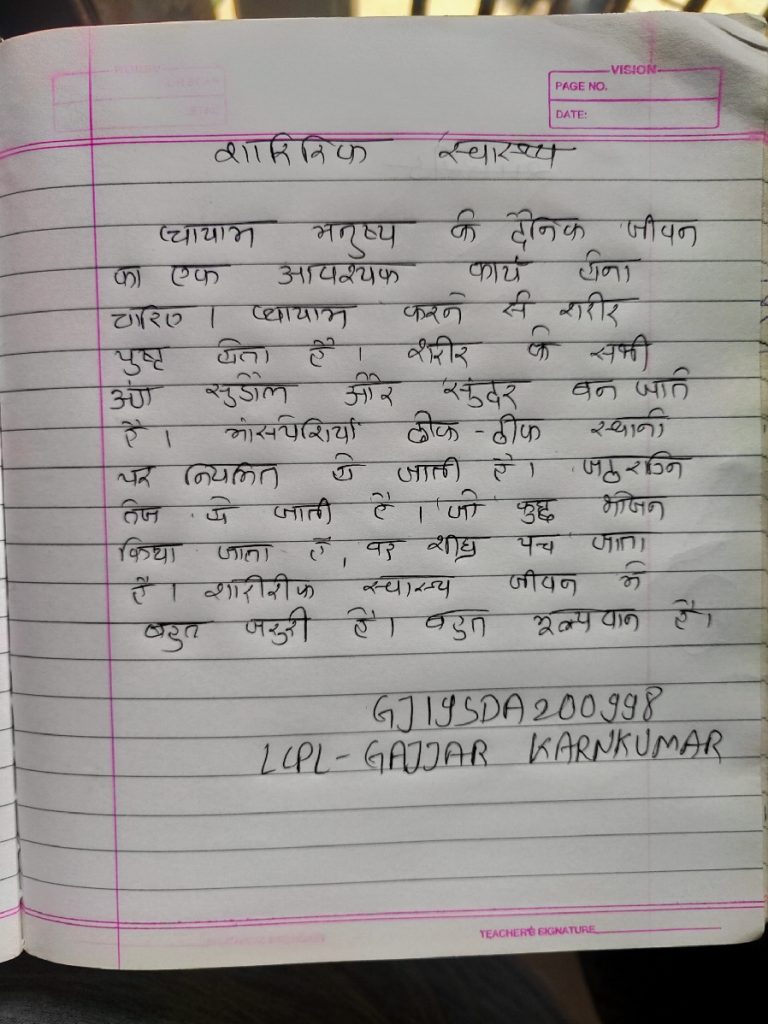 VISION
PAGE NO.
DATE:
शारिरिक स्वास्थ्य
व्यायाम मनुष्य के दैनिक जीवन
का एक आवश्यक कार्य होना
चाहिए । व्यायाम करने से शरीर
पुष्ट होता है । शरीर के सभी
अंग सुडौल और सुंदर बन जाते
है । मांसपेशियाँ ठीक - ठीक स्थानों
पर नियमित हो जाती है । जठराग्नि
तेज हो जाती है । जो कुछ भोजन
किया जाता है, वह शीघ्र पच जाता
है । शारीरीक स्वास्थ्य जीवन में
बहुत जरुरी है । बहुत मूल्यवान है ।
GJ19SDA200998
LCPL-GAJJAR KARNKUMAR
TEACHER'S SIGNATURE